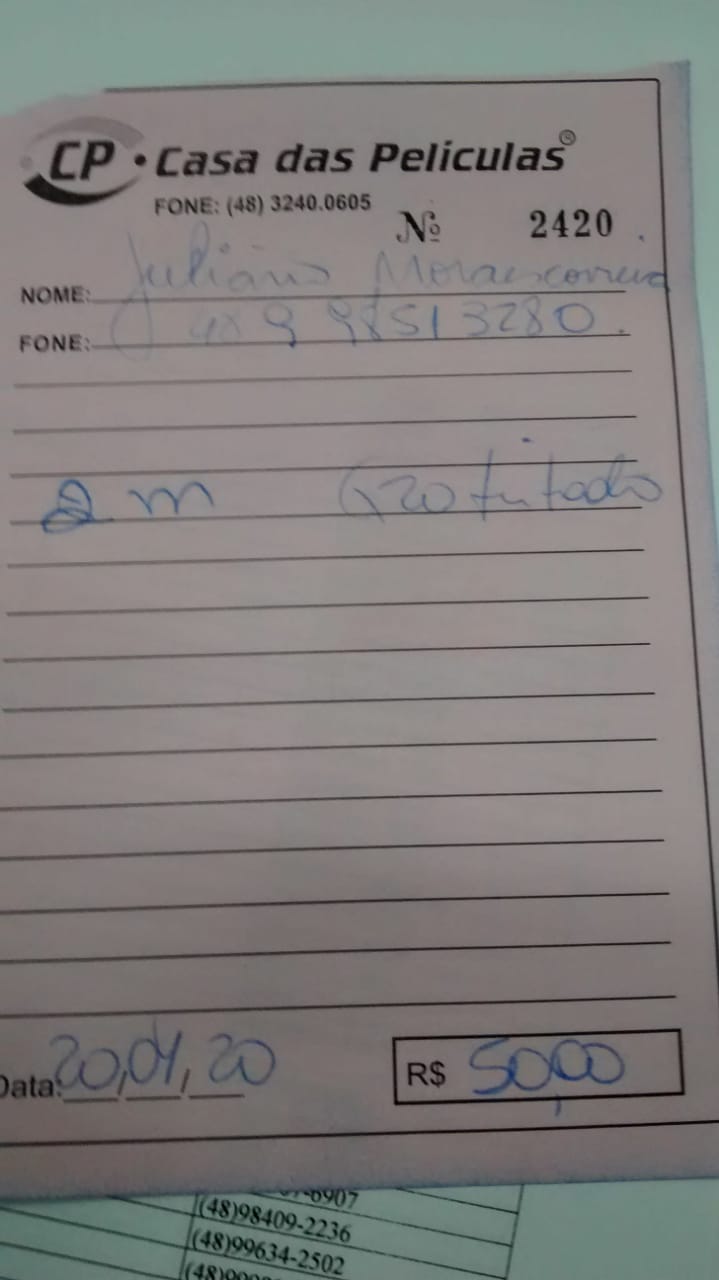 CP • Casa das Películas ®
FONE: (48) 3240.0605
Nº 2420
NOME: Juliano Moraes correia
FONE: 48 9 98513280
2 m G20 fu tado
Data: 20,04,20
R$ 50,00
-6907
(48)98409-2236
(48)99634-2502